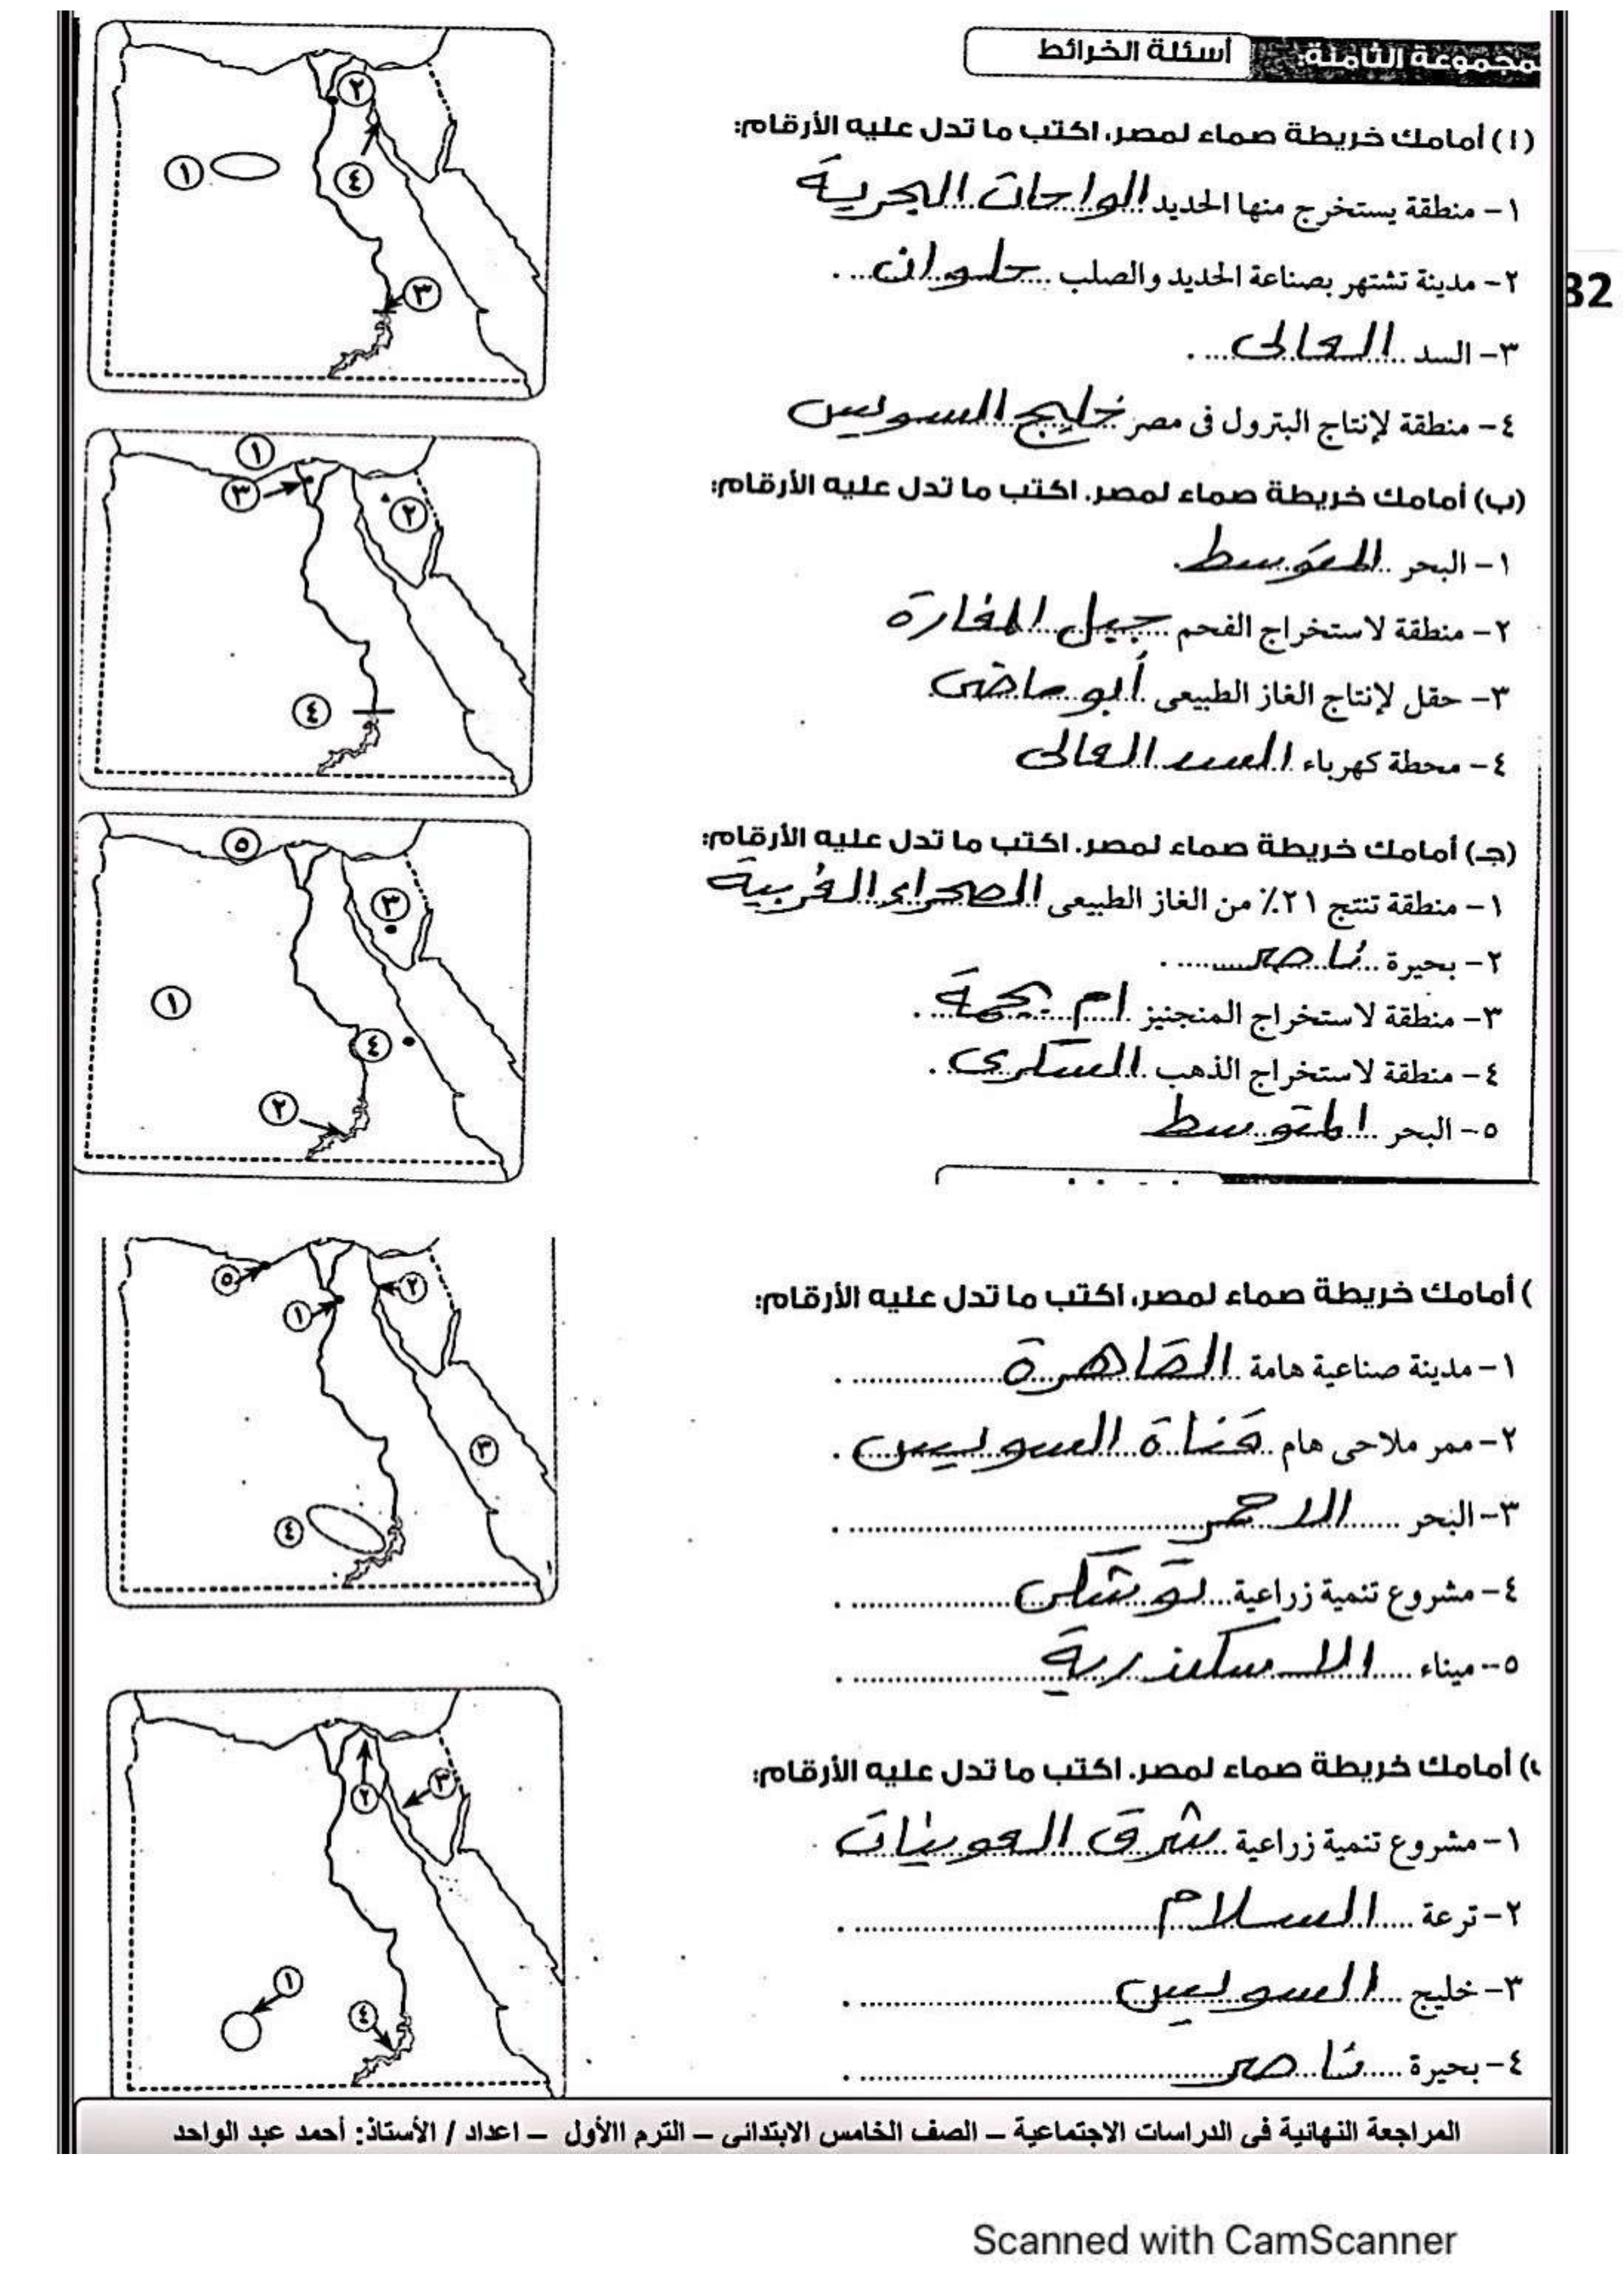 مجموعة الثامنة: أسئلة الخرائط
(١) أمامك خريطة صماء لمصر، اكتب ما تدل عليه الأرقام:
١- منطقة يستخرج منها الحديد الواحات البحرية
٢- مدينة تشتهر بصناعة الحديد والصلب حلوان .
٣- السد العالى .
٤- منطقة لإنتاج البترول فى مصر خليج السويس
32
(ب) أمامك خريطة صماء لمصر، اكتب ما تدل عليه الأرقام:
١- البحر المتوسط .
٢- منطقة لاستخراج الفحم جبل المغارة
٣- حقل لإنتاج الغاز الطبيعى أبو ماضى .
٤- محطة كهرباء السد العالى
(جـ) أمامك خريطة صماء لمصر، اكتب ما تدل عليه الأرقام:
١- منطقة تنتج ٢١٪ من الغاز الطبيعى الصحراء الغربية
٢- بحيرة ناصر .
٣- منطقة لاستخراج المنجنيز ام بجمة .
٤- منطقة لاستخراج الذهب السكرى .
٥- البحر المتوسط
) أمامك خريطة صماء لمصر، اكتب ما تدل عليه الأرقام:
١- مدينة صناعية هامة القاهرة .
٢- ممر ملاحى هام قناة السويس .
٣- البحر الاحمر .
٤- مشروع تنمية زراعية توشكى .
٥- ميناء الاسكندرية .
) أمامك خريطة صماء لمصر، اكتب ما تدل عليه الأرقام:
١- مشروع تنمية زراعية شرق العوينات .
٢- ترعة السلام .
٣- خليج السويس .
٤- بحيرة ناصر .
١
٢
٣
٤
١
٢
٣
٤
١
٢
٣
٤
٥
١
٢
٣
٤
٥
١
٢
٣
٤
المراجعة النهائية فى الدراسات الاجتماعية – الصف الخامس الابتدائى – الترم االأول – اعداد / الأستاذ: أحمد عبد الواحد
Scanned with CamScanner